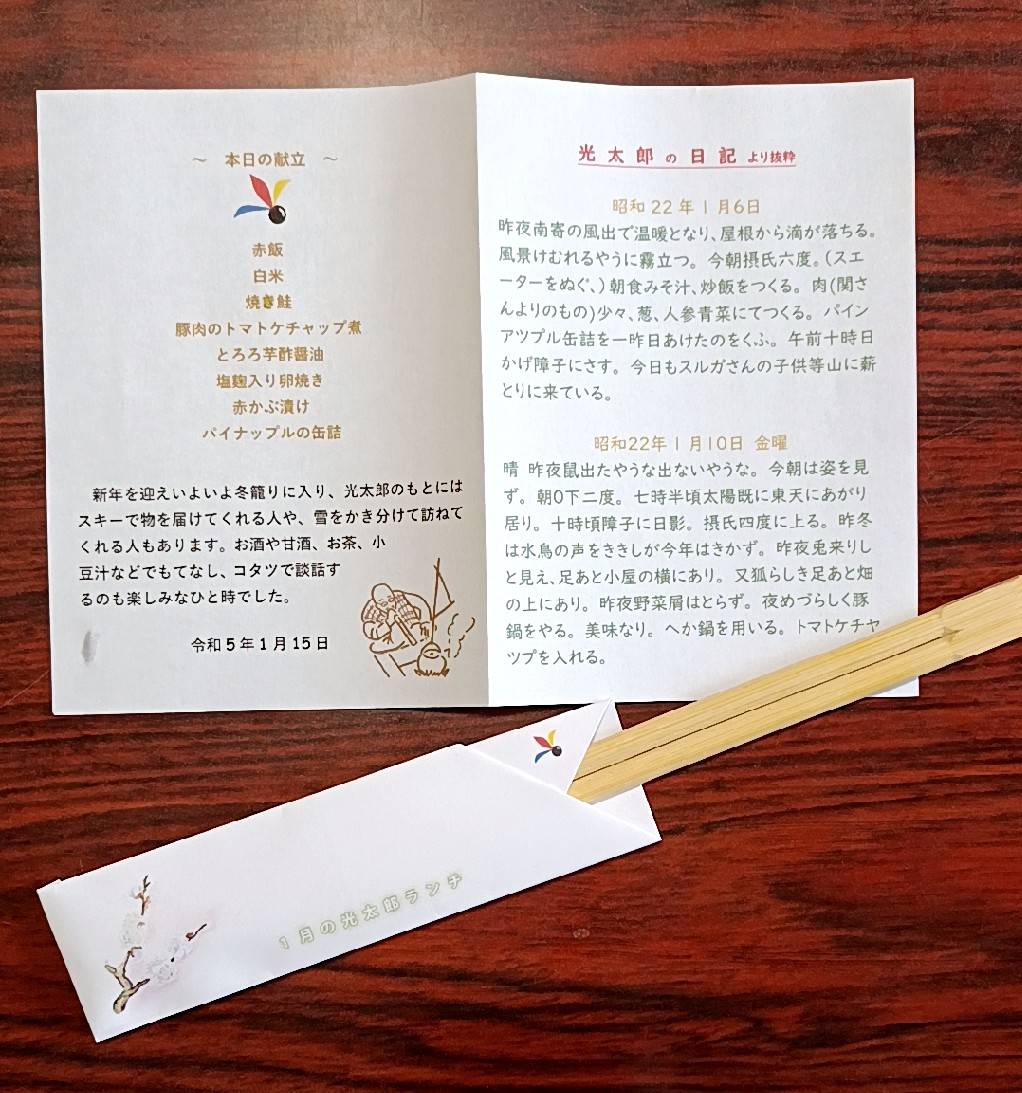 ～ 本日の献立 ～
赤飯
白米
焼き鮭
豚肉のトマトケチャップ煮
とろろ芋酢醤油
塩麹入り卵焼き
赤かぶ漬け
パイナップルの缶詰
新年を迎えいよいよ冬籠りに入り、光太郎のもとには
スキーで物を届けてくれる人や、雪をかき分けて訪ねて
くれる人もあります。お酒や甘酒、お茶、小
豆汁などでもてなし、コタツで談話す
るのも楽しみなひと時でした。
令和5年1月15日
光太郎の日記より抜粋
昭和22年1月6日
昨夜南寄の風出で温暖となり、屋根から滴が落ちる。
風景けむれるやうに霧立つ。今朝摂氏六度。(スエ
ーターをぬぐ、)朝食みそ汁、炒飯をつくる。肉(関さ
んよりのもの)少々、葱、人参青菜にてつくる。パイン
アツプル缶詰を一昨日あけたのをくふ。午前十時日
かげ障子にさす。今日もスルガさんの子供等山に薪
とりに来ている。
昭和22年1月10日 金曜
晴 昨夜鼠出たやうな出ないやうな。今朝は姿を見
ず。朝0下二度。七時半頃太陽既に東天にあがり
居り。十時頃障子に日影。摂氏四度に上る。昨冬
は水鳥の声をききしが今年はきかず。昨夜兎来りし
と見え、足あと小屋の横にあり。又狐らしき足あと畑
の上にあり。昨夜野菜屑はとらず。夜めづらしく豚
鍋をやる。美味なり。へか鍋を用いる。トマトケチヤ
ツプを入れる。
1月の光太郎ランチ